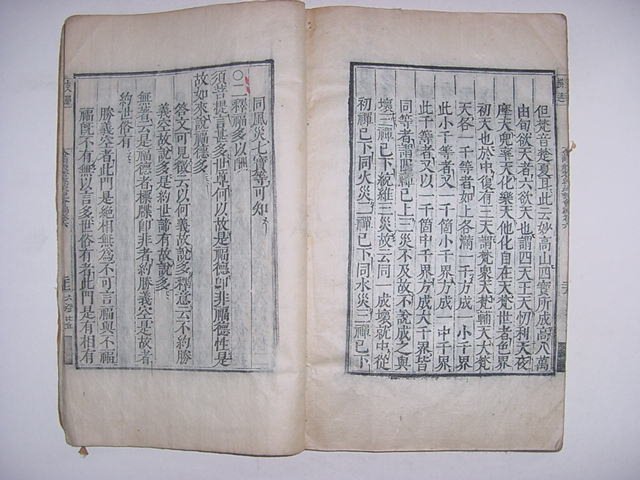 但梵音楚夏耳此云妙高山四寶所成高八萬
由旬欲天者六欲天也謂四天王天忉利天夜
摩天兜率天化樂天他化自在天梵世者色界
初天也於中復有三天謂梵衆天梵輔天大梵
天各一千等者如上各滿一千方成一小千界
此小千等者又一千箇小千界方成一中千界
此千等者又一千箇中千界方成大千界皆
同等者謂四禪已上三災不及故不說成之與
壞三禪已下統維三災故云同一成壞就中從
初禪已下同火災二禪已下同水災三禪已下
同風災七寶等可知
○二釋福多以
須菩提言甚多世尊何以故是福德卽非福德性是
故如來說福德多
答文可見徵云以何義故說多釋意云不約勝
義空故說多是約世諦有故說多
無著云是福德者標牒卽非者約勝義空是故者
約世俗有
勝義空者此門是絶相無爲不可言福與不福
福旣不有無以言多世俗有者此門是有相有